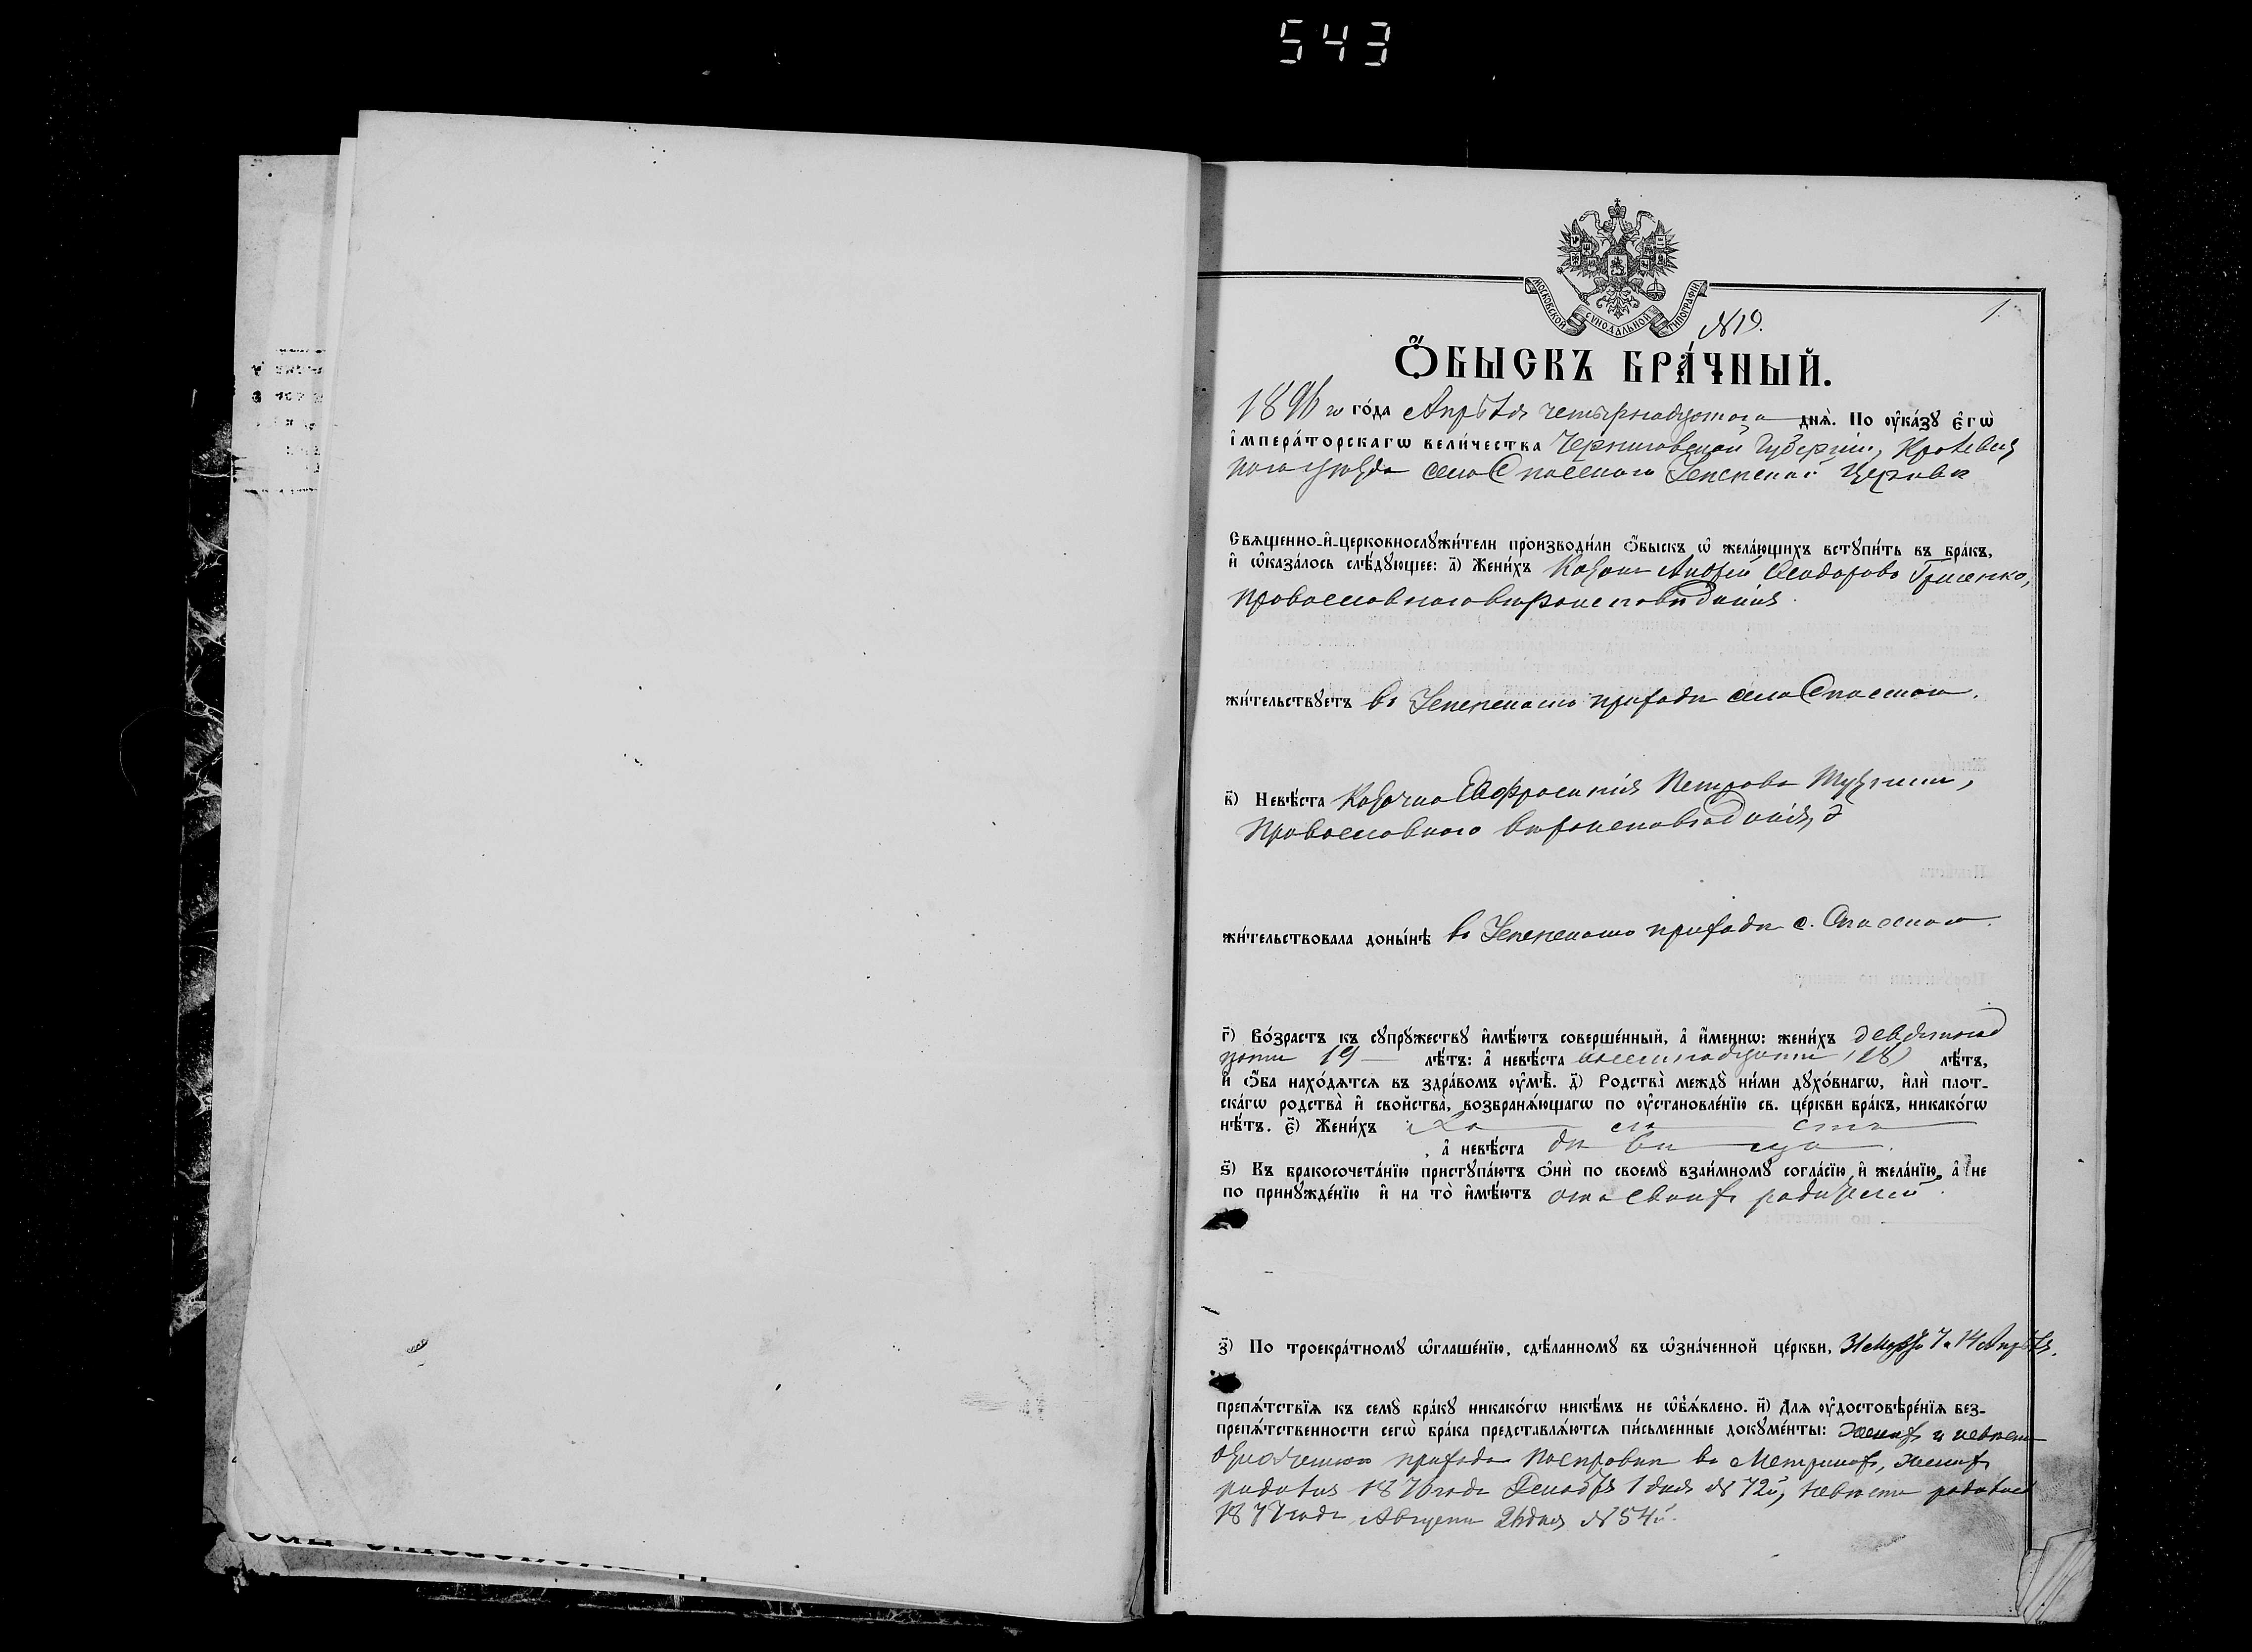 543
МОСКОВСКОЙ СѴНОДАЛЬНОЙ ТИПОГРАФІИ
№ 19.
1
Ѻ҆БЫСКЪ БРА́ЧНЫЙ.
1896 гѡ го́да Апрѣля четырнадцатаго днѧ̀. По ᲂу҆ка́зꙋ є҆гѡ̀
і҆мпера́торскагѡ вели́чества Черниговской Губерніи, Кролевец
каго уѣзда села Спаского Успенской Церкви
Свѧщенно-и҆-церковнослꙋжи́тели производи́ли ѻ҆́быскъ ѡ҆ жела́ющихъ встꙋпи́ть въ бра́къ,
и҆ ѡ҆каза́лось слѣ́дꙋющее: а҃) Жени́хъ Козакъ Андрей Ѳеодоровъ Гриценко,
православнаго вѣроисповѣданія.
жи́тельствꙋетъ въ Успенскомъ приходѣ села Спаского.
в҃) Невѣ́ста Козачка Евфросинія Петрова
Православнаго вѣроисповѣданія,
жи́тельствовала доны́нѣ въ Успенскомъ приходѣ с. Спаского.
г҃) Во́зрастъ къ сꙋпрꙋ́жествꙋ и҆мѣ́ютъ соверше́нный, а҆ и҆́меннѡ: жени́хъ девятнад
цати 19 лѣ́тъ: а҆ невѣ́ста восемнадцати (18) лѣ́тъ,
и҆ ѻ҆́ба нахо́дѧтсѧ въ здра́вомъ ᲂу҆мѣ̀. д҃) Родства̀ междꙋ̀ ни́ми дꙋхо́внагѡ, и҆лѝ плот-
ска́гѡ родства̀ и҆ свойства̀, возбранѧ́ющагѡ по ᲂу҆становле́нїю св. це́ркви бра́къ, никако́гѡ
нѣ́тъ. є҃) Жени́хъ холостъ
, а҆ невѣ́ста дѣвица.
ѕ҃) Къ бракосочета́нїю пристꙋпа́ютъ ѻ҆нѝ по своемꙋ̀ взаи́мномꙋ согла́сїю и҆ жела́нїю, а҆ не
по принꙋжде́нїю и҆ на то̀ и҆мѣ́ютъ отъ своихъ родителей.
з҃) По троекра́тномꙋ ѡ҆глаше́нїю, сдѣ́ланномꙋ въ ѡ҆зна́ченной це́ркви, 31 Марта 7 и 14 Апрѣля.
препѧ́тствїѧ къ семꙋ̀ бра́кꙋ никако́гѡ никѣ́мъ не ѡ҆б̾ѧ́влено. и҃) Длѧ ᲂу҆достовѣре́нїѧ без-
препѧ́тственности сегѡ̀ бра́ка представлѧ́ютсѧ пи́сьменные докꙋме́нты: Женихъ и невѣста
прихода въ Метрикахъ, женихъ
родился 1876 года Декабря 1 дня № 72й, невѣста родилась
1877 года Августа № 54й.